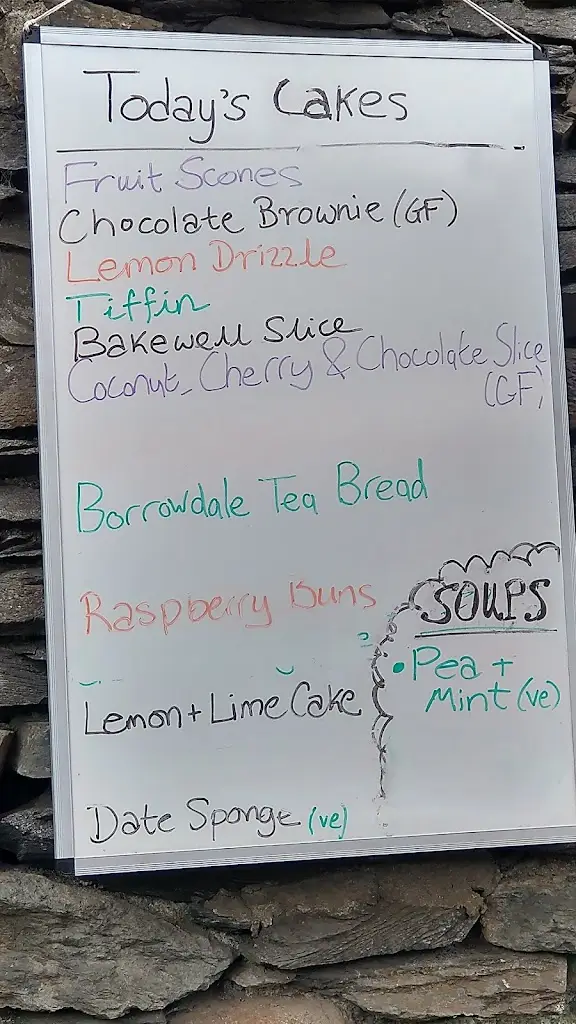 Today's Cakes
Fruit Scones
Chocolate Brownie (GF)
Lemon Drizzle
Tiffin
Bakewell Slice
Coconut, Cherry & Chocolate Slice
(GF)
Borrowdale Tea Bread
Raspberry Buns
Lemon + Lime Cake
Date Sponge (ve)
SOUPS
• Pea +
Mint (ve)